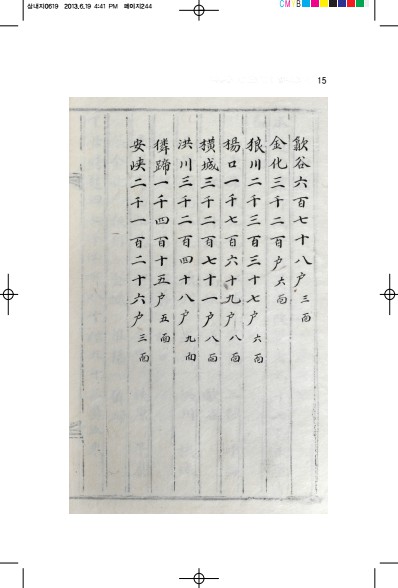 삼내지0619 2013.6.19 4:41 PM 페이지244
CM B
15
歙谷六百七十八户 三面
金化三千二百户 六面
狼川二千三百三十七户 六面
楊口一千七百六十九户 八面
横城三千二百七十一户 八面
洪川三千二百四十八户 九面
獜蹄一千四百十五户 五面
安峽二千一百二十六户 三面